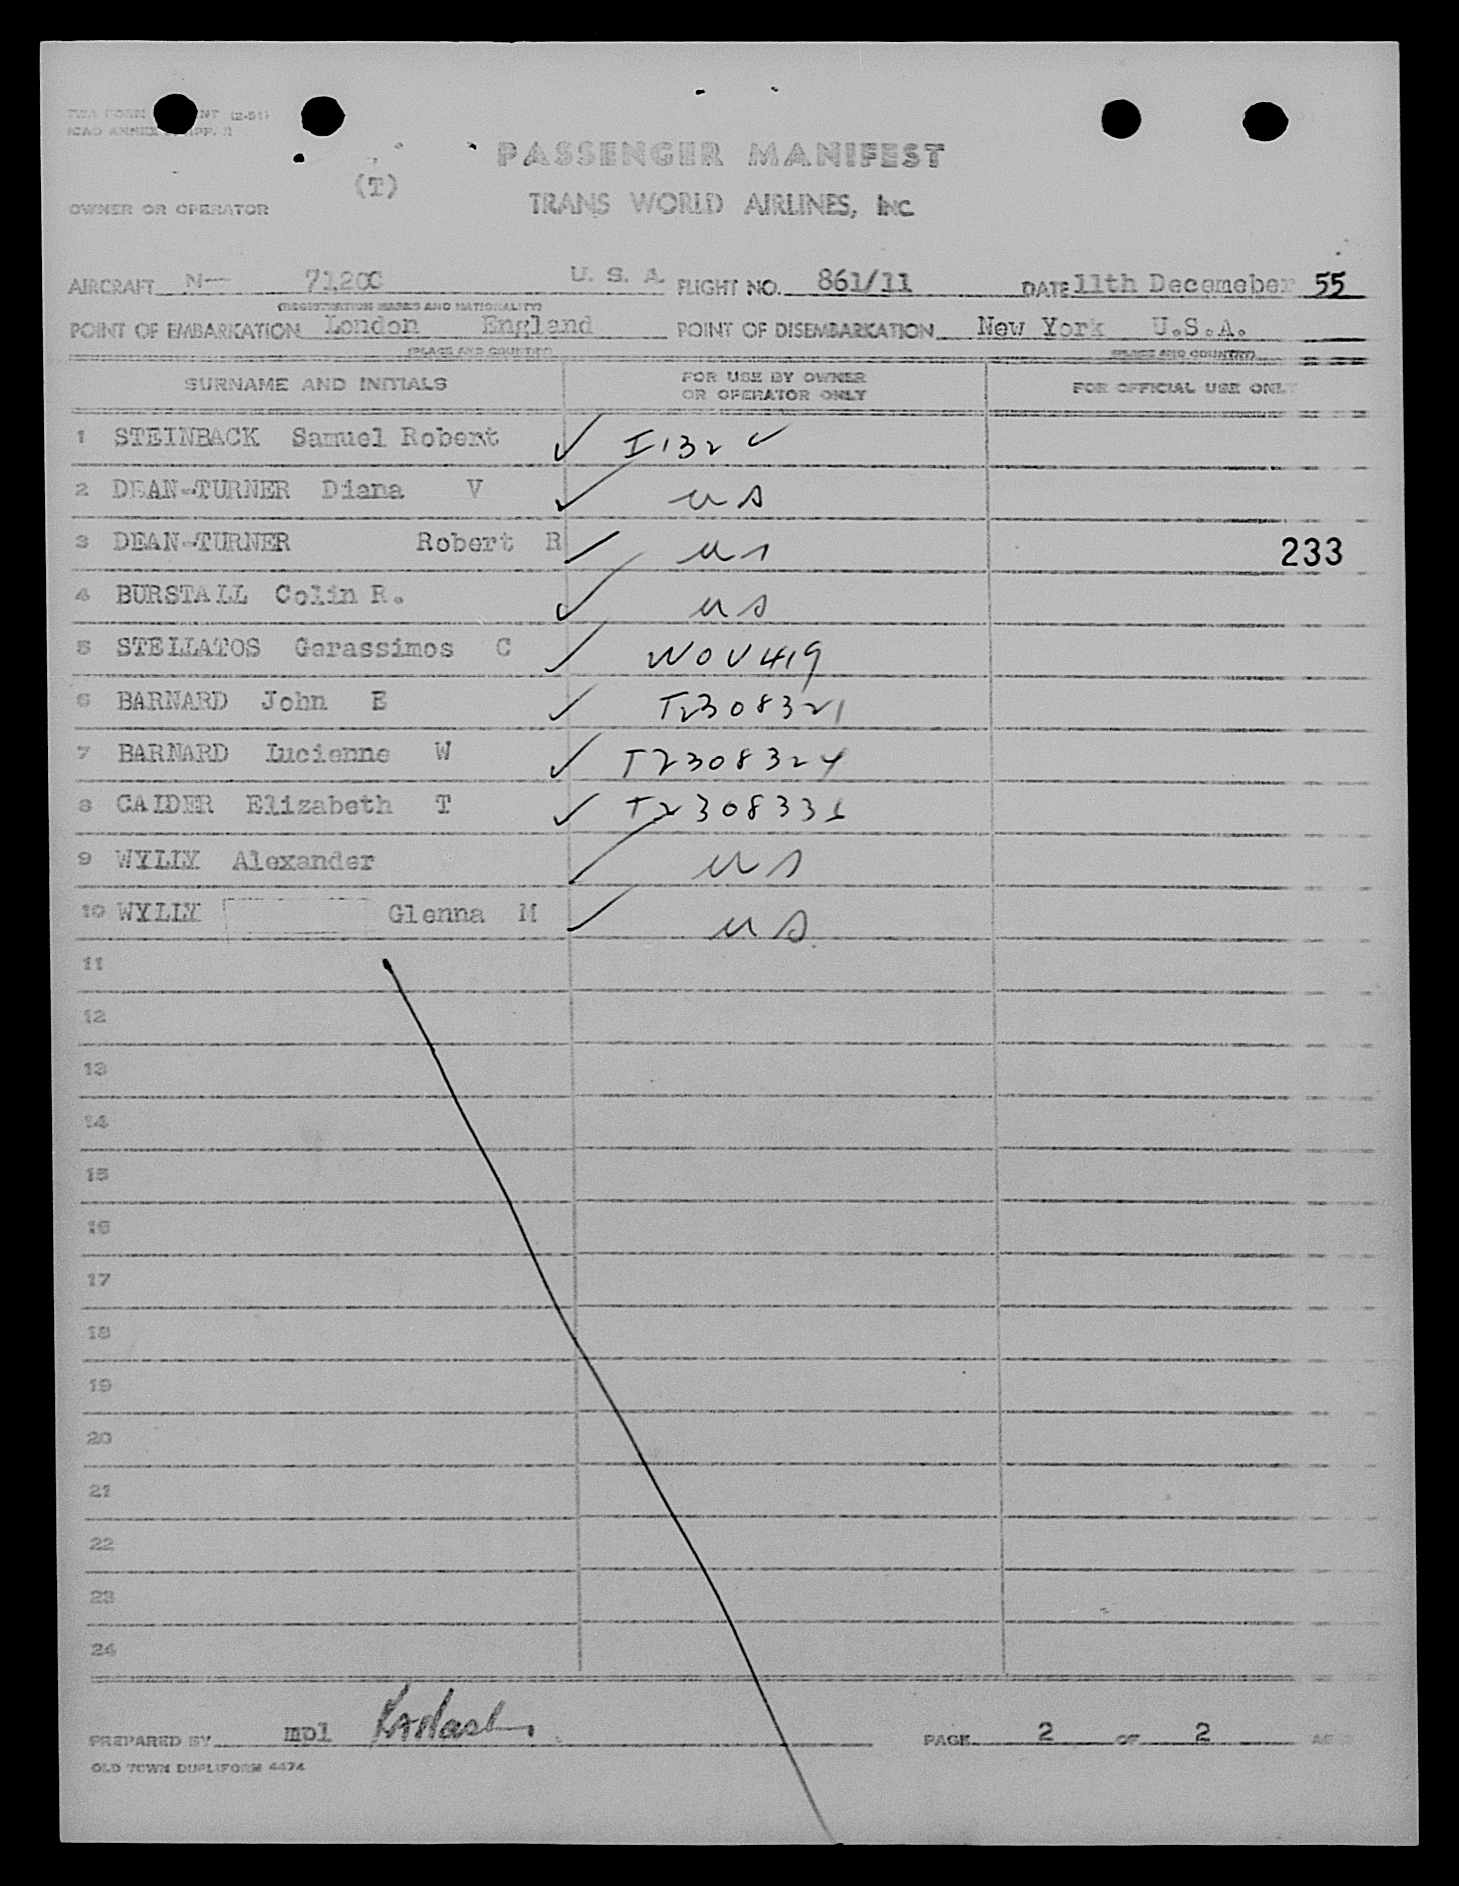 TWA FORM NT (2-51)
ICAO ANNEX APP. II
PASSENGER MANIFEST
(T)
OWNER OR OPERATOR
TRANS WORLD AIRLINES, INC
AIRCRAFT N- 71200 U. S. A. FLIGHT NO. 861/11 DATE 11th Decemeber 55
(REGISTRATION MARKS AND NATIONALITY)
POINT OF EMBARKATION London England POINT OF DISEMBARKATION New York U.S.A.
(PLACE AND COUNTRY) (PLACE AND COUNTRY)
SURNAME AND INITIALS FOR USE BY OWNER OR OPERATOR ONLY FOR OFFICIAL USE ONLY
1 STEINBACK Samuel Robert ✓ I132 ✓
2 DEAN-TURNER Diana V ✓ us
3 DEAN-TURNER Robert R ✓ us 233
4 BURSTALL Colin R. ✓ us
5 STELLATOS Gerassimos C ✓ NOV419
6 BARNARD John E ✓ T2308321
7 BARNARD Lucienne W ✓ T2308324
8 CALDER Elizabeth T ✓ T2308331
9 WYLLY Alexander ✓ us
10 WYLLY Glenna M ✓ us
11
12
13
14
15
16
17
18
19
20
21
22
23
24
PREPARED BY mpl PAGE 2 OF 2
OLD TOWN DUPLIFORM 4474